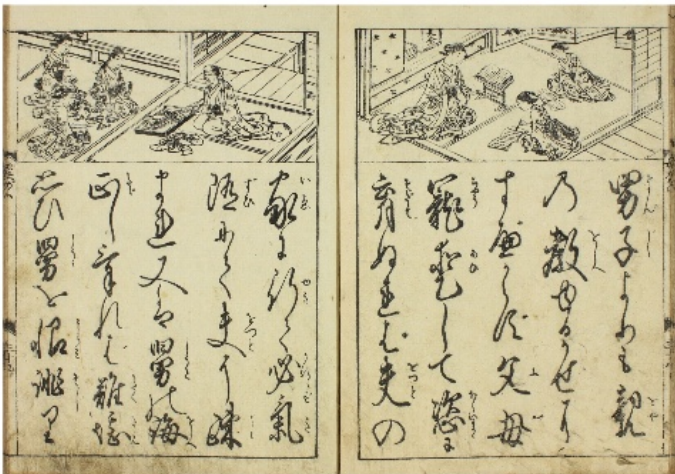 男子よりも親
の教ゆるがせに
すべからず父母
寵愛して恣に
育ぬれば夫の
家に行て必氣
随にて夫に疎
まれ又は舅の誨
正しければ難堪
思ひ舅を恨誹り